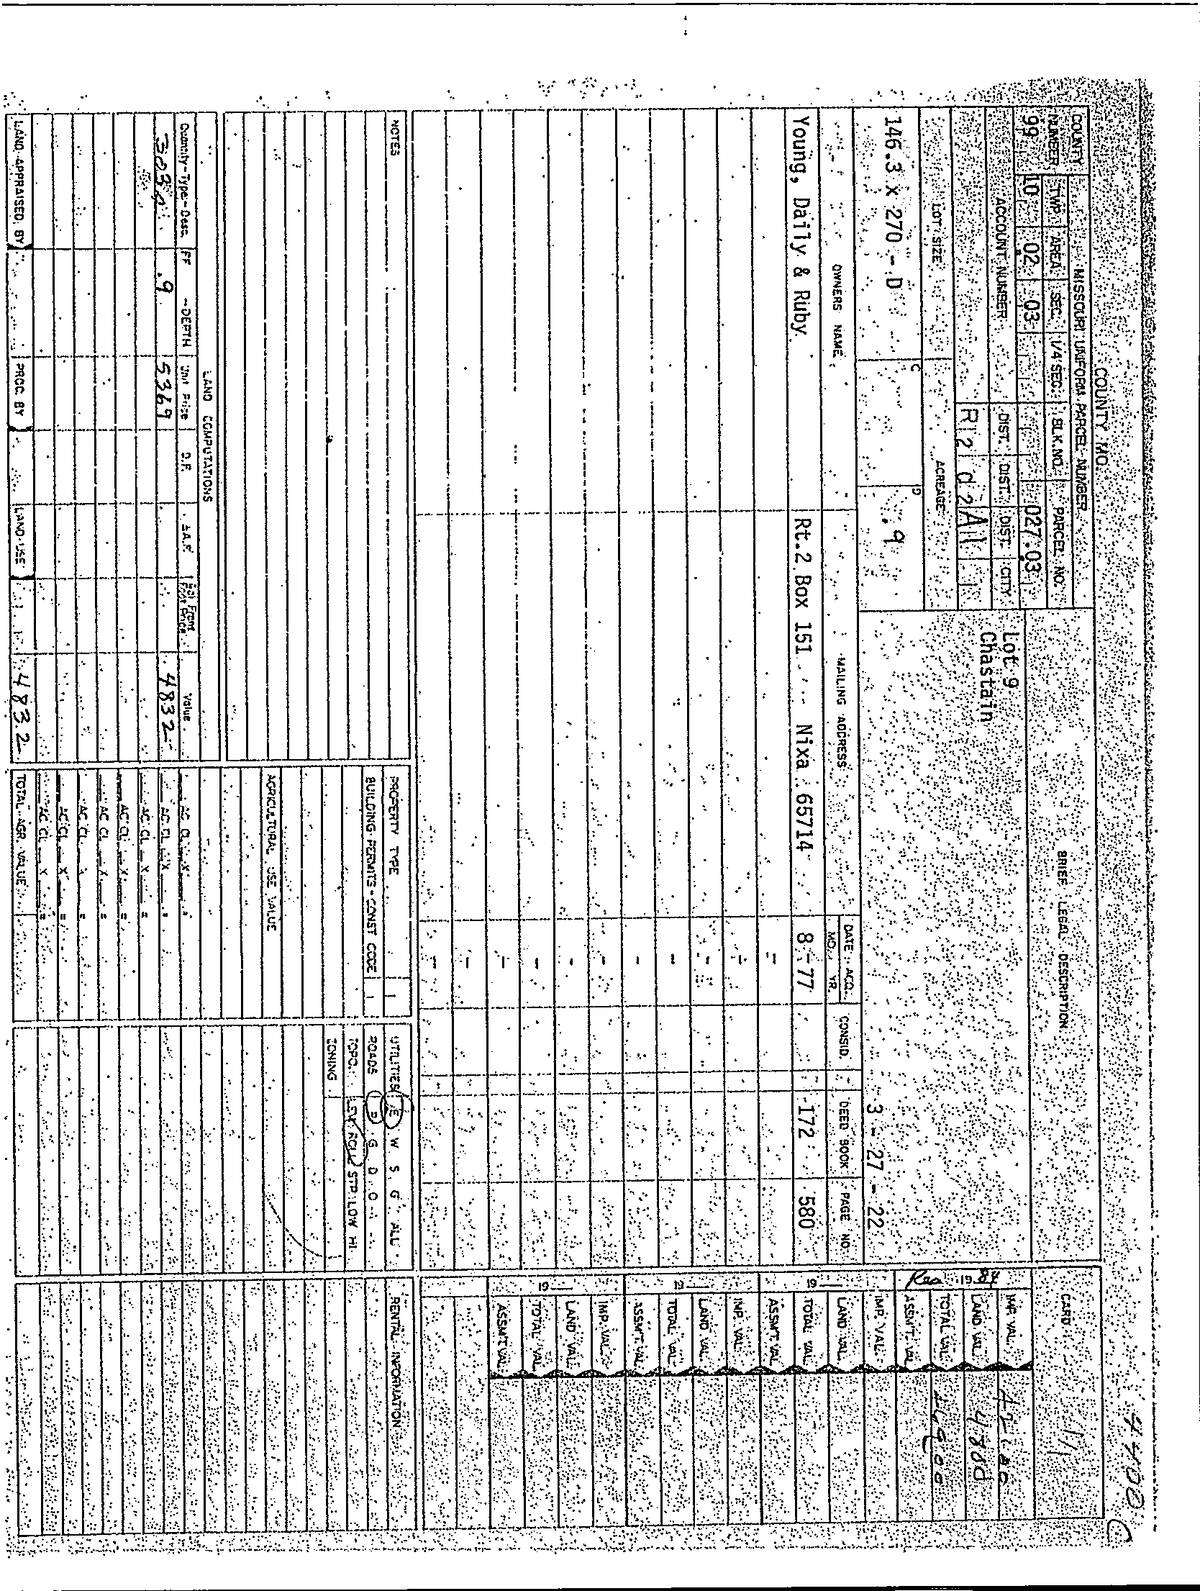 4400 C
COUNTY MO.
COUNTY NUMBER MISSOURI UNIFORM PARCEL NUMBER
TWP. AREA SEC. 1/4 SEC. BLK.NO. PARCEL NO.
99 10 02 03 027.03
ACCOUNT NUMBER DIST. DIST. DIST. CITY
R 2 d 2 A 1
LOT SIZE ACREAGE
146.3 x 270 - D C D .9
BRIEF LEGAL DESCRIPTION
Lot 9
Chastain
3 - 27 - 22
CARD 1/1
OWNERS NAME MAILING ADDRESS DATE ACQ. MO. YR. CONSID. DEED BOOK PAGE NO.
Young, Daily & Ruby Rt.2 Box 151 Nixa 65714 8-77 172 580
Rea 19 84
IMP. VAL.
LAND VAL. 4800
TOTAL VAL.
ASSM'T. VAL.
19
IMP. VAL.
LAND VAL.
TOTAL VAL.
ASSM'T. VAL.
19
IMP. VAL.
LAND VAL.
TOTAL VAL.
ASSM'T. VAL.
19
IMP. VAL.
LAND VAL.
TOTAL VAL.
ASSM'T. VAL.
NOTES
PROPERTY TYPE
BUILDING PERMITS - CONST CODE
AGRICULTURAL USE VALUE
AC CL X =
AC CL X =
AC CL X =
AC CL X =
AC CL X =
AC CL =
AC CL X =
AC CL X =
TOTAL AGR. VALUE
UTILITIES E W S G ALL
ROADS P G D O
TOPO. LEV ROLL STP LOW HI
ZONING
RENTAL INFORMATION
LAND COMPUTATIONS
Quantity-Type-Desc FF -DEPTH Unit Price D.F. Adj. Front Foot Price Value
.9 5369 4832
LAND APPRAISED BY PROC. BY LAND USE 4832